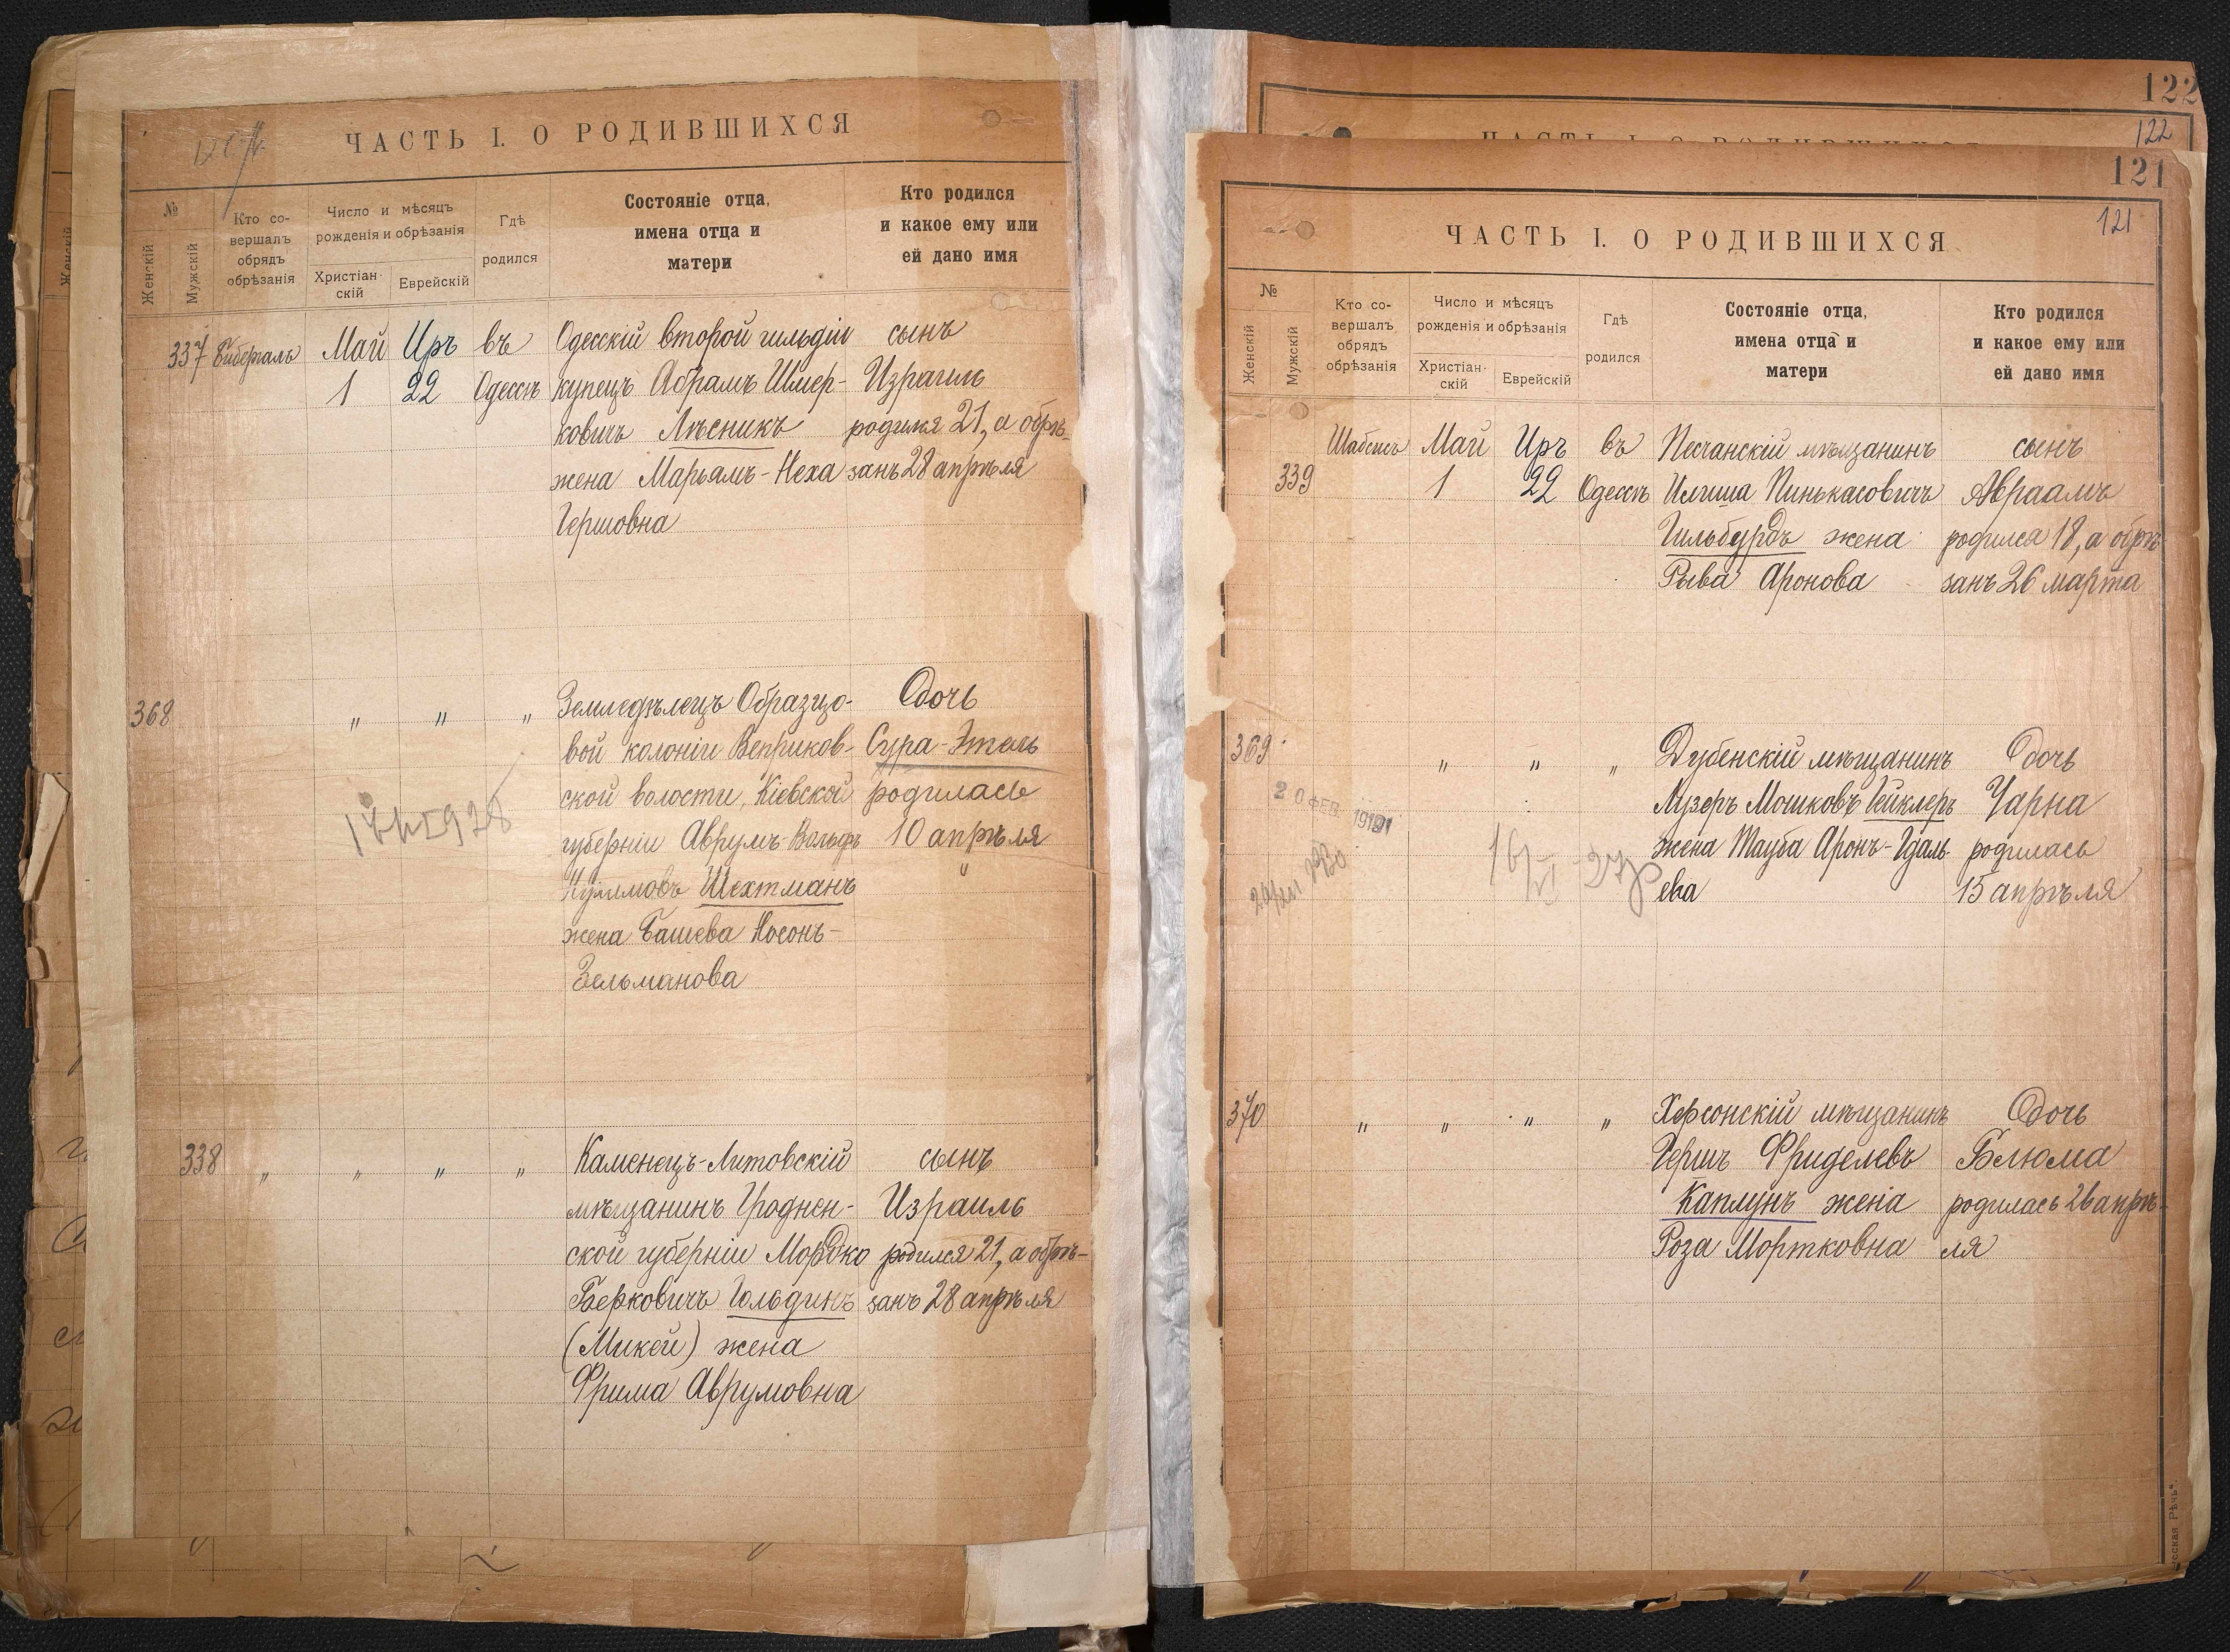 ЧАСТЬ I. О РОДИВШИХСЯ
№
Женскій
Мужскій
Кто со-
вершалъ
обрядъ
обрѣзанія
Число и мѣсяцъ
рожденія и обрѣзанія
Христіан-
скій
Еврейскій
Гдѣ
родился
Состояніе отца,
имена отца и
матери
Кто родился
и какое ему или
ей дано имя
337 Май Иръ въ Одесскій второй гильдіи сынъ
1 22 Одессѣ купецъ Абрамъ Шмер- Израиль
ковичъ Лѣсникъ родился 21, а обрѣ-
жена Марьямъ-Неха занъ 28 апрѣля
Гершовна
368 " " " Земледѣлецъ Образцо- Дочь
вой колоніи Веприков- Сура-Этель
ской волости, Кіевской родилась
губерніи Аврумъ-Вольфъ 10 апрѣля
Шехтманъ
жена Башева Носонъ-
Зельманова
338 " " " " Каменецъ-Литовскій сынъ
мѣщанинъ Гроднен- Израиль
ской губерніи Мордко родился 21, а обрѣ-
Беркович Гольдинъ занъ 28 апрѣля
(Микей) жена
Фрима Аврумовна
122
122
121
121
ЧАСТЬ I. О РОДИВШИХСЯ
№
Женскій
Мужскій
Кто со-
вершалъ
обрядъ
обрѣзанія
Число и мѣсяцъ
рожденія и обрѣзанія
Христіан-
скій
Еврейскій
Гдѣ
родился
Состояніе отца,
имена отца и
матери
Кто родился
и какое ему или
ей дано имя
Шабсисъ Май Иръ въ Песчанскій мѣщанинъ сынъ
339 1 22 Одессѣ Пинькасовичъ Авраамъ
Гильбурдъ жена родился 18, а обрѣ
Рыва Аронова занъ 26 марта
369 " " " Дубенскій мѣщанинъ Дочь
Лузеръ Мошковъ Гейклеръ Чарна
жена Тауба Аронъ-Гдаль- родилась
ева 15 апрѣля
20 ФЕВ.
370 " " " " Херсонскій мѣщанинъ Дочь
Гершъ Фриделевъ Блюма
Каплунъ жена родилась 26 апрѣ-
Роза Мортковна ля
ческая Рѣчь".